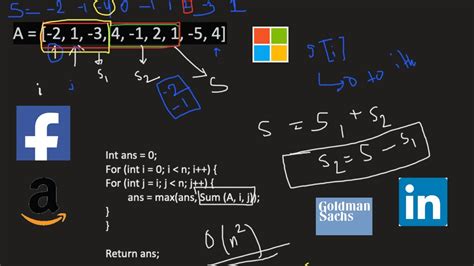 S = -2 -1 -4 0 -1 1 3 1
A = [-2, 1, -3, 4, -1, 2, 1, -5, 4]
S[i]
↳ 0 to ith
i j S₁ S₂ S
-2
-1
S = S₁ + S₂
S₂ = S - S₁
Int ans = 0;
For (int i = 0; i < n; i++) {
For (int j = i; j < n; j++) {
ans = max(ans, Sum (A, i, j);
}
}
Return ans;
O(n²)
f
a
Goldman
Sachs
in